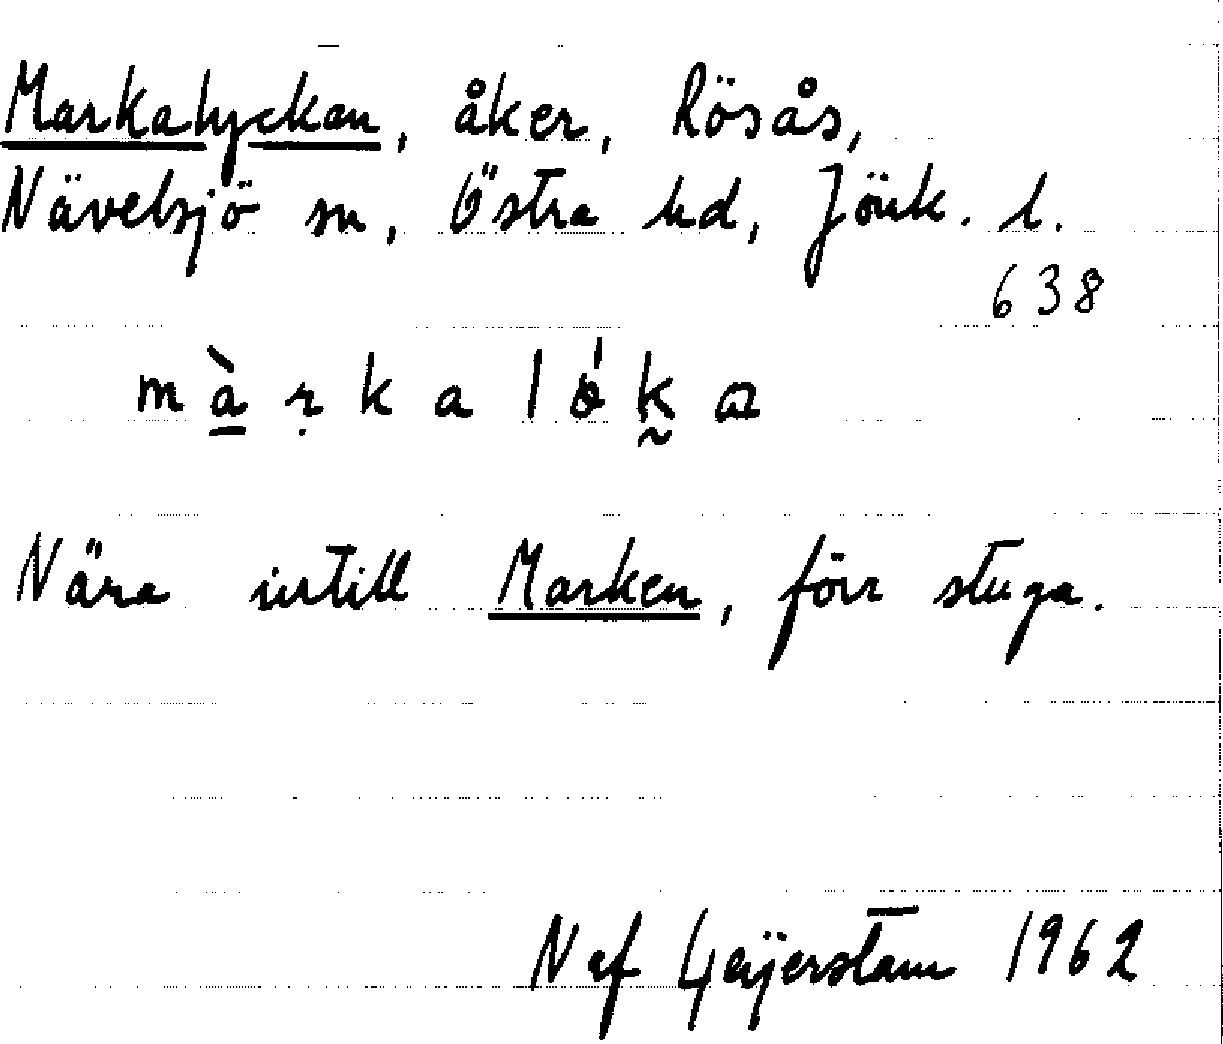 Markalyckan, åker, Rösås,
Nävelsjö sn, Östra hd, Jönk. l.
638
m à̱ ṛ k a l ǿ k̰ a
Nära intill Marken, förr stuga.
N af Geijerstam 1962